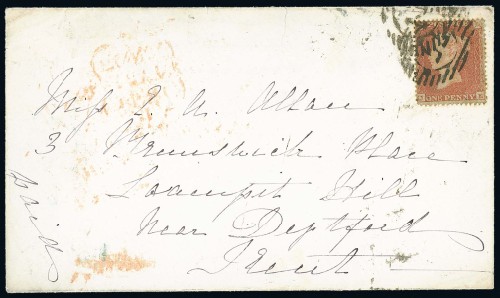 ONE PENNY
Miss
3 Brunswick Place
Loampit Hill
Near Deptford
Kent
Paid